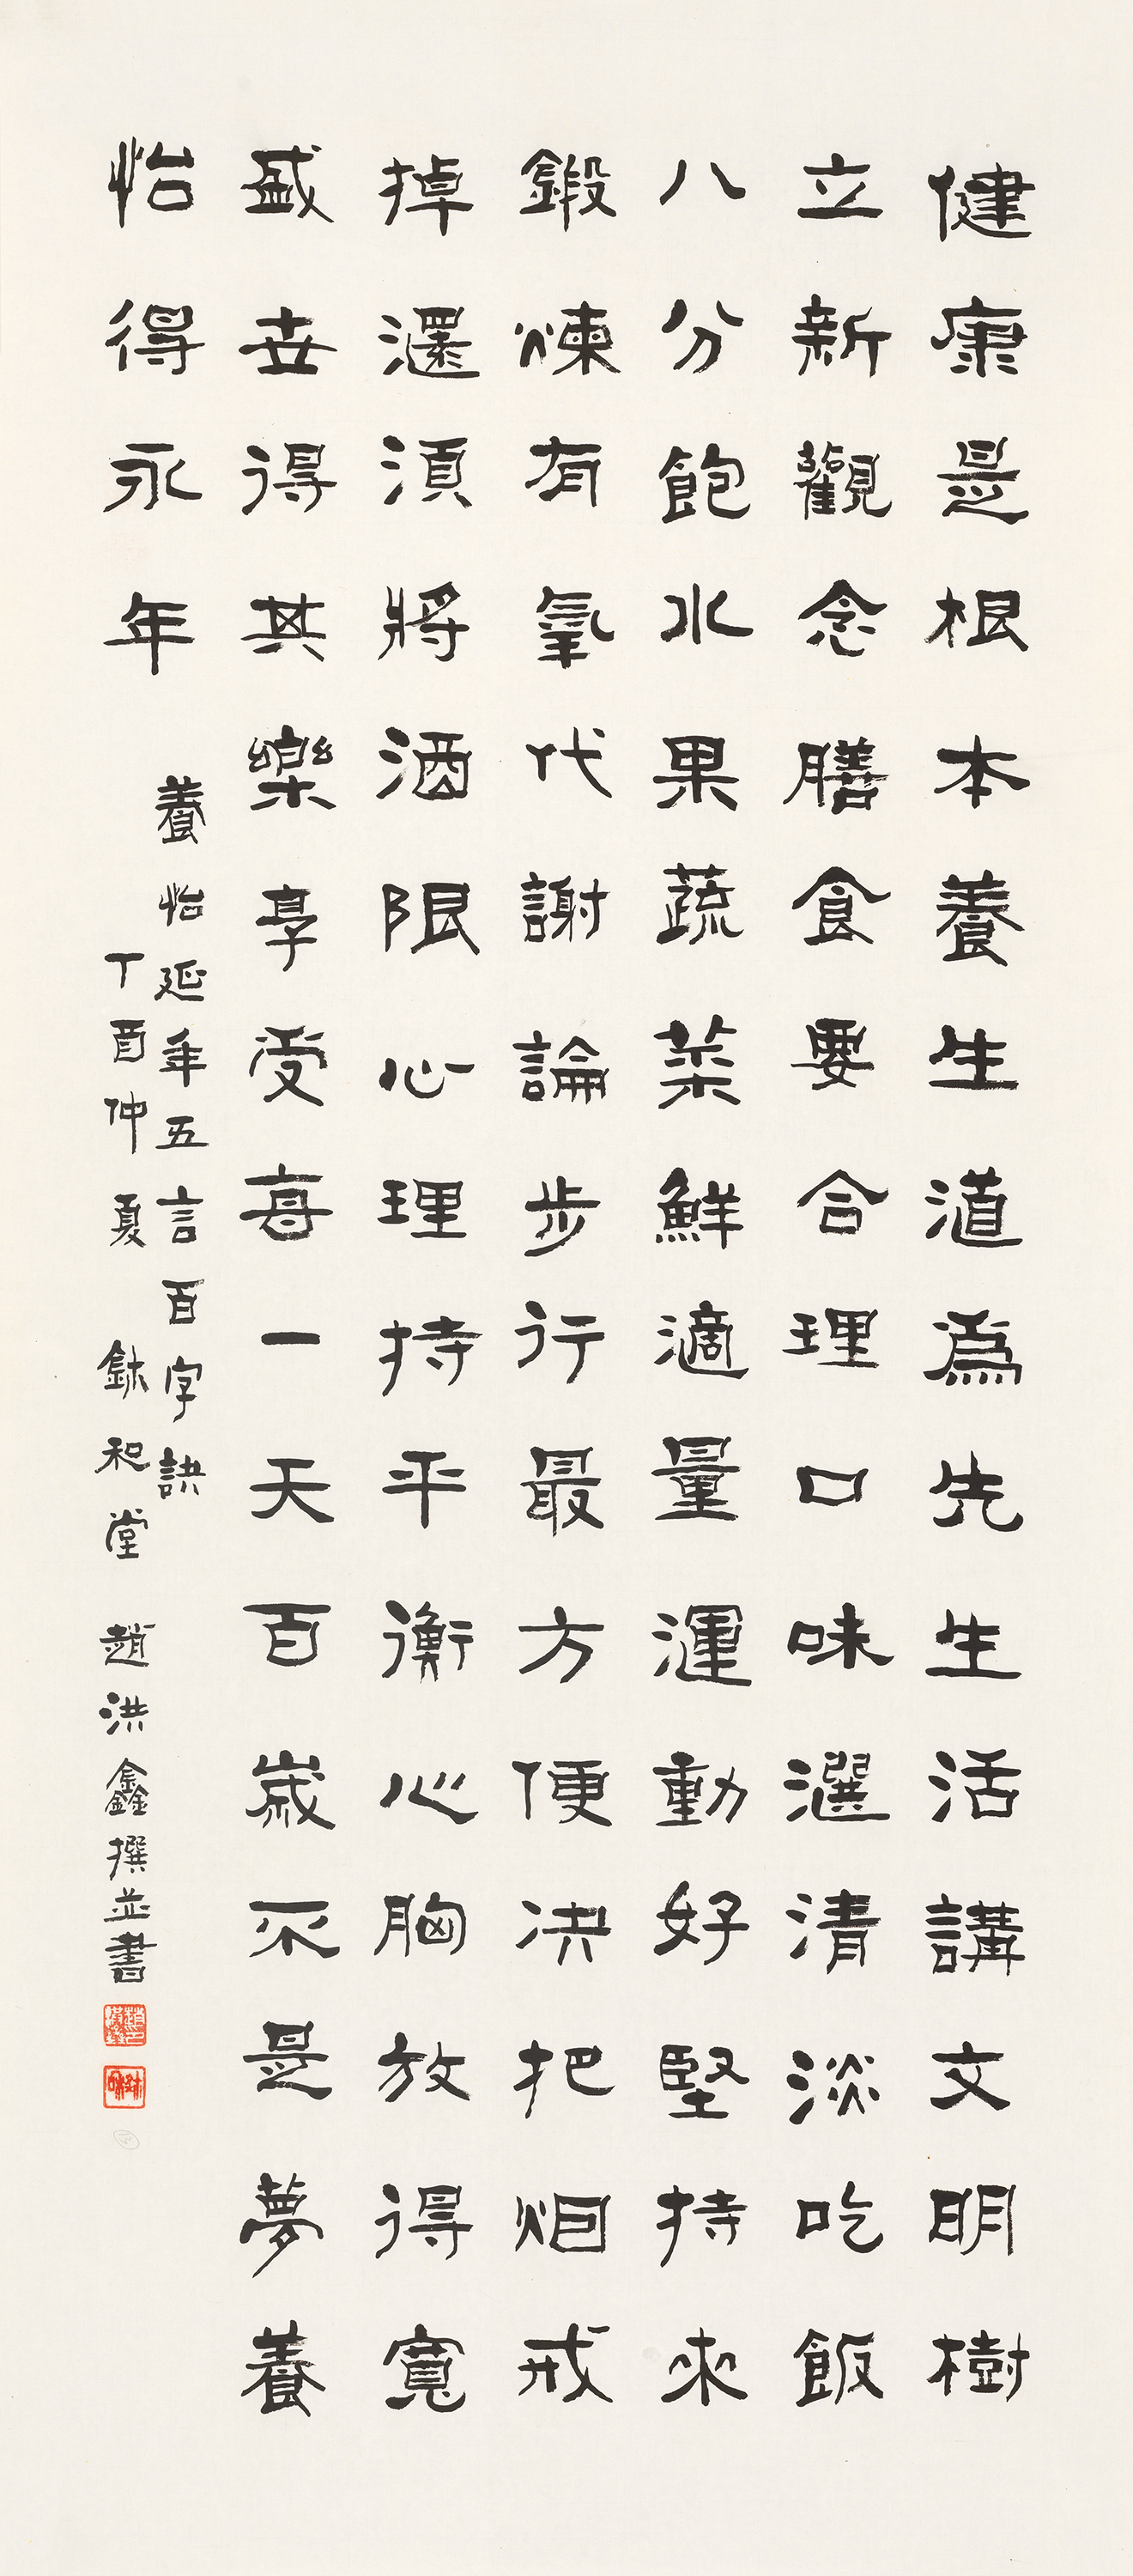 健康是根本養生道爲先生活講文明樹
立新觀念膳食要合理口味選清淡吃飯
八分飽水果蔬菜鮮適量運動好堅持來
鍛煉有氧代謝論步行最方便决把烟戒
掉還須將酒限心理持平衡心胸放得寬
盛世得其樂享受每一天百歲不是夢養
怡得永年
養怡延年五言百字訣
丁酉仲夏 鉥和堂 趙洪鑫撰並書